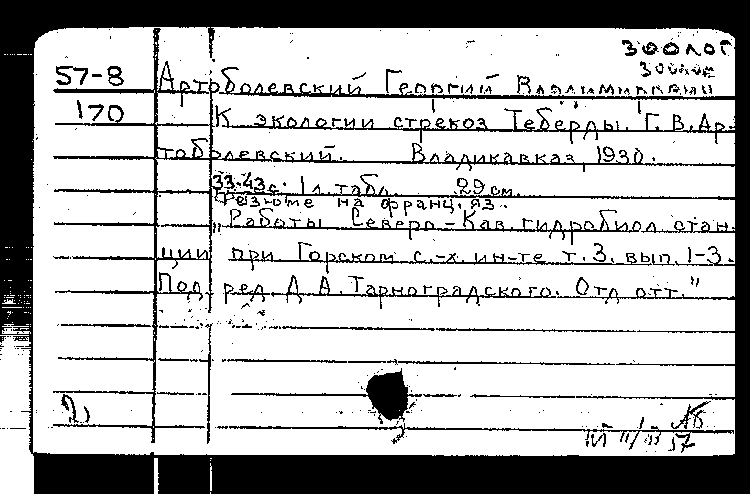 зоолог
зоолог
57-8 Артоболевский Георгий Владимирович
170 К экологии стрекоз Теберды. Г. В. Ар-
тоболевский. Владикавказ, 1930.
33-43 с. 1 л. табл. 29 см.
Резюме на франц. яз.
"Работы Северо-Кав. гидробиол стан-
ции при Горском с.-х. ин-те т. 3. вып. 1-3.
Под ред. Д. А. Тарноградского. Отд отт."